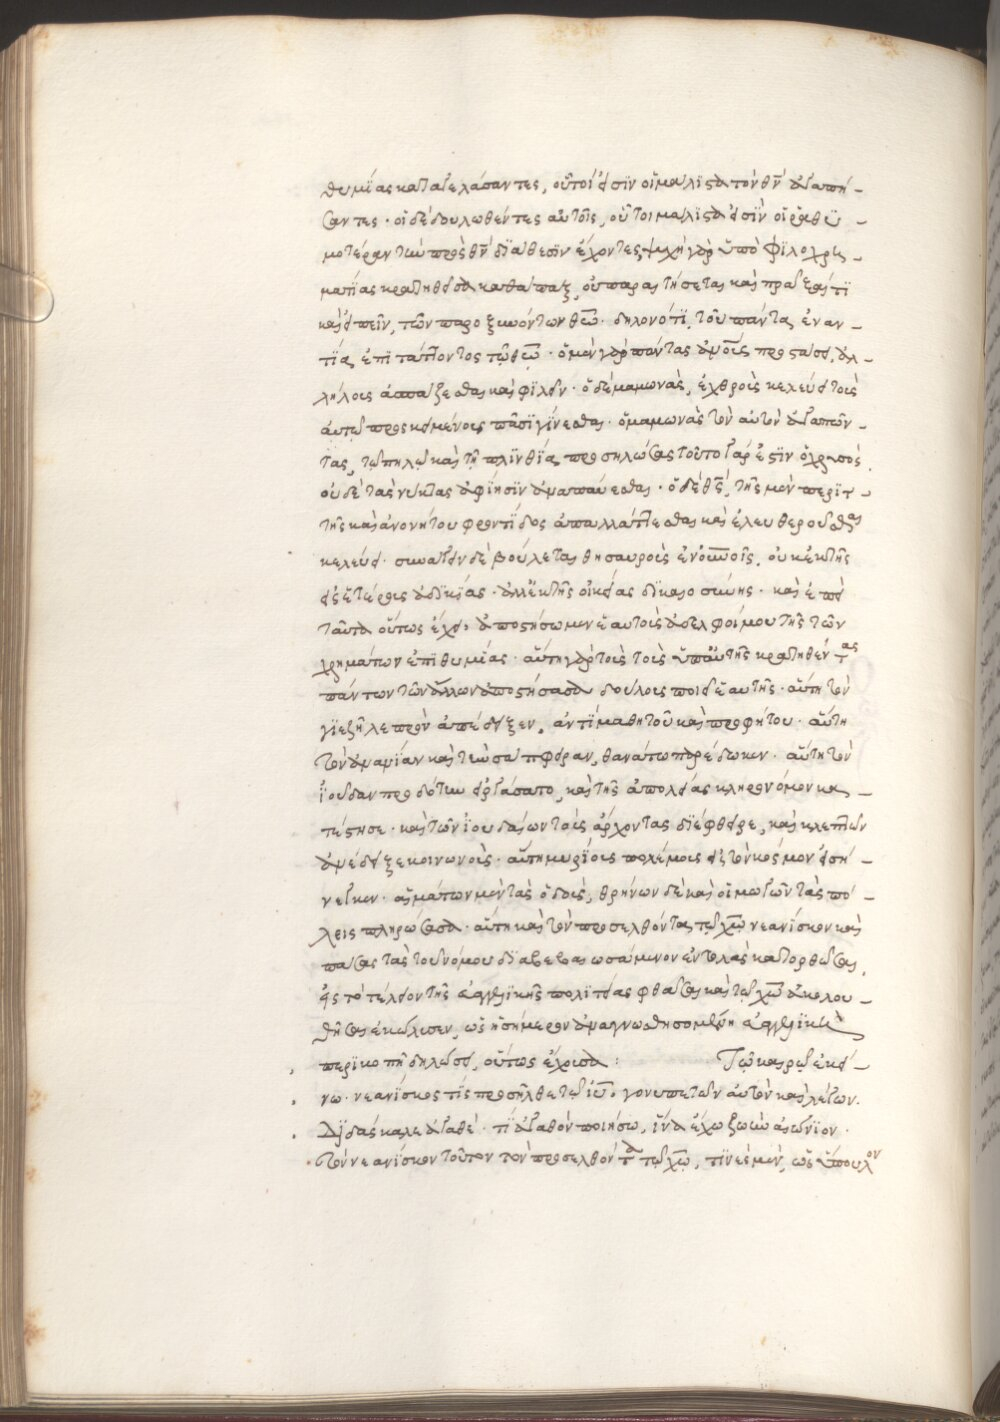 θυμίας καταγελάσαντες, οὗτοί εἰσιν οἱ μάλιστα τὸν θν̄ ἀγαπή-
σαντες· οἱ δὲ δουλωθέντες αὐτοῖς, οὗτοι μάλιστά εἰσιν οἱ ῥαθυ-
μοτέραν τὴν πρὸς θν̄ διάθεσιν ἔχοντες ψυχὴ γὰρ ὑπὸ φιλοχρη-
ματίας κρατηθεῖσα καθάπαξ, οὐ παραιτήσεται καὶ πρᾶξαί τι
καὶ εἰπεῖν, τῶν παροξυνόντων θεῷ· δηλονότι, τοῦ πάντα ἐναν-
τία ἐπιτάττοντος τῷ θεῷ· ὁ μὲν γὰρ πάντας ἡμᾶς προστάσσει, ἀλ-
λήλοις ἀσπάζεσθαι καὶ φιλεῖν· ὁ δὲ μαμωνᾶς, ἐχθροὺς κελεύει τοῖς
αὐτῷ προσκειμένοις πᾶσι γίνεσθαι· ὁ μαμωνᾶς τὸν αὐτὸν ἀγαπῶν-
τας, τῷ πηλῷ καὶ τῇ πλινθίᾳ προσηλώσας τοῦτο γάρ ἐστιν ὁ χρυσός,
οὐδὲ τὰς νύκτας ἀφίησιν ἀναπαύεσθαι· ὁ δὲ θς̄, τῆς μὲν περιτ-
τῆς καὶ ἀνονήτου φροντίδος ἀπαλλάττεσθαι καὶ ἐλευθεροῦσθαι
κελεύει· συνάγειν δὲ βούλεται θησαυροὺς ἐν οὐνοῖς, οὐκ ἐκ τῆς
εἰς ἑτέρους ἀδικίας· ἀλλ' ἐκ τῆς οἰκείας δικαιοσύνης· καὶ ἐπεὶ
ταῦτα οὕτως ἔχει, ἀποστήσωμεν ἑαυτοὺς ἀδελφοί μου τῆς τῶν
χρημάτων ἐπιθυμίας· αὕτη γὰρ τοὺς τοὺς ὑπ' αὐτῆς κρατηθέντας
πάντων τῶν ἄλλων ἀποστήσασα δούλους ποιεῖ ἑαυτῆς· αὕτη τὸν
γιεζῆ λεπρὸν ἀπέδειξεν, ἀντὶ μαθητοῦ καὶ προφήτου· αὕτη
τὸν ἀνανίαν καὶ τὴν σάπφειραν, θανάτῳ παρέδωκεν· αὕτη τὸν
ἰούδαν προδότην εἰργάσατο, καὶ τῆς ἀπωλείας κληρονόμον κα-
τέστησε· καὶ τῶν ἰουδαίων τοὺς ἄρχοντας διέφθειρε, καὶ κλεπτῶν
ἀνέδειξε κοινωνούς· αὕτη μυρίους πολέμους εἰς τὸν κόσμον εἰσή-
νεγκεν· αἱμάτων μὲν τὰς ὁδούς, θρήνων δὲ καὶ οἰμωγῶν τὰς πό-
λεις πληρώσασα· αὕτη καὶ τὸν προσελθόντα τῷ χω̄ νεανίσκον καὶ
πάσας τὰς τοῦ νόμου διαβεβαιωσάμενον ἐντολὰς κατορθῶσαι,
εἰς τὸ τέλειον τῆς εὐαγγελικῆς πολιτείας φθάσαι καὶ τῷ χω̄ ἀκολου-
θῆσαι ἐκώλυσεν, ὡς ἡ σήμερον ἀναγνωσθησομένη εὐαγγελικὴ
περικοπὴ δηλώσει, οὕτως ἔχουσα: Τῷ καιρῷ ἐκεί-
νῳ· νεανίσκος τίς προσῆλθε τῷ ιῡ, γονυπετῶν αὐτὸν καὶ λέγων.
Διδάσκαλε ἀγαθέ· τί ἀγαθὸν ποιήσω, ἵνα ἔχω ζωὴν αἰώνιον·
τὸν νεανίσκον τοῦτον τὸν προσελθόντα τῷ χω̄, τινὲς μὲν, ὡς ὕπουλον